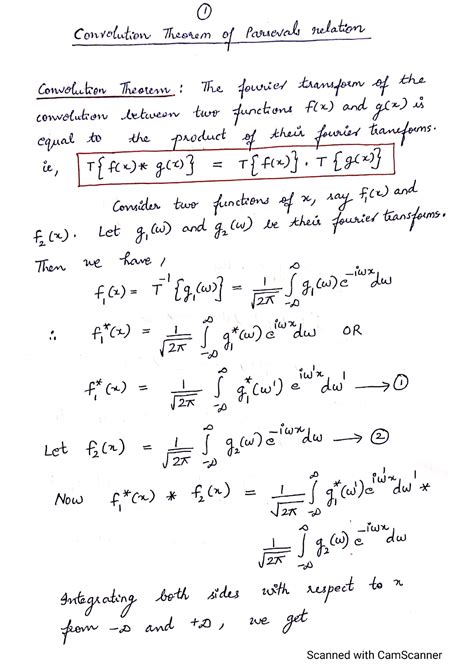 ①
Convolution Theorem of Parsevals relation
Convolution Theorem : The fourier transform of the
convolution between two functions f(x) and g(x) is
equal to the product of their fourier transforms.
ie, T{f(x)* g(x)} = T{f(x)} · T{g(x)}
Consider two functions of x, say f₁(x) and
f₂(x). Let g₁(ω) and g₂(ω) be their fourier transforms.
Then we have,
f₁(x) = T⁻¹{g₁(ω)} = 1/√2π ∫_{-∞}^{∞} g₁(ω) e^{-iωx} dω
∴ f₁*(x) = 1/√2π ∫_{-∞}^{∞} g₁*(ω) e^{iωx} dω OR
f₁*(x) = 1/√2π ∫_{-∞}^{∞} g₁*(ω') e^{iω'x} dω' → ①
Let f₂(x) = 1/√2π ∫_{-∞}^{∞} g₂(ω) e^{-iωx} dω → ②
Now f₁*(x) * f₂(x) = 1/√2π ∫_{-∞}^{∞} g₁*(ω') e^{iω'x} dω' *
1/√2π ∫_{-∞}^{∞} g₂(ω) e^{-iωx} dω
Integrating both sides with respect to x
from -∞ and +∞, we get
Scanned with CamScanner